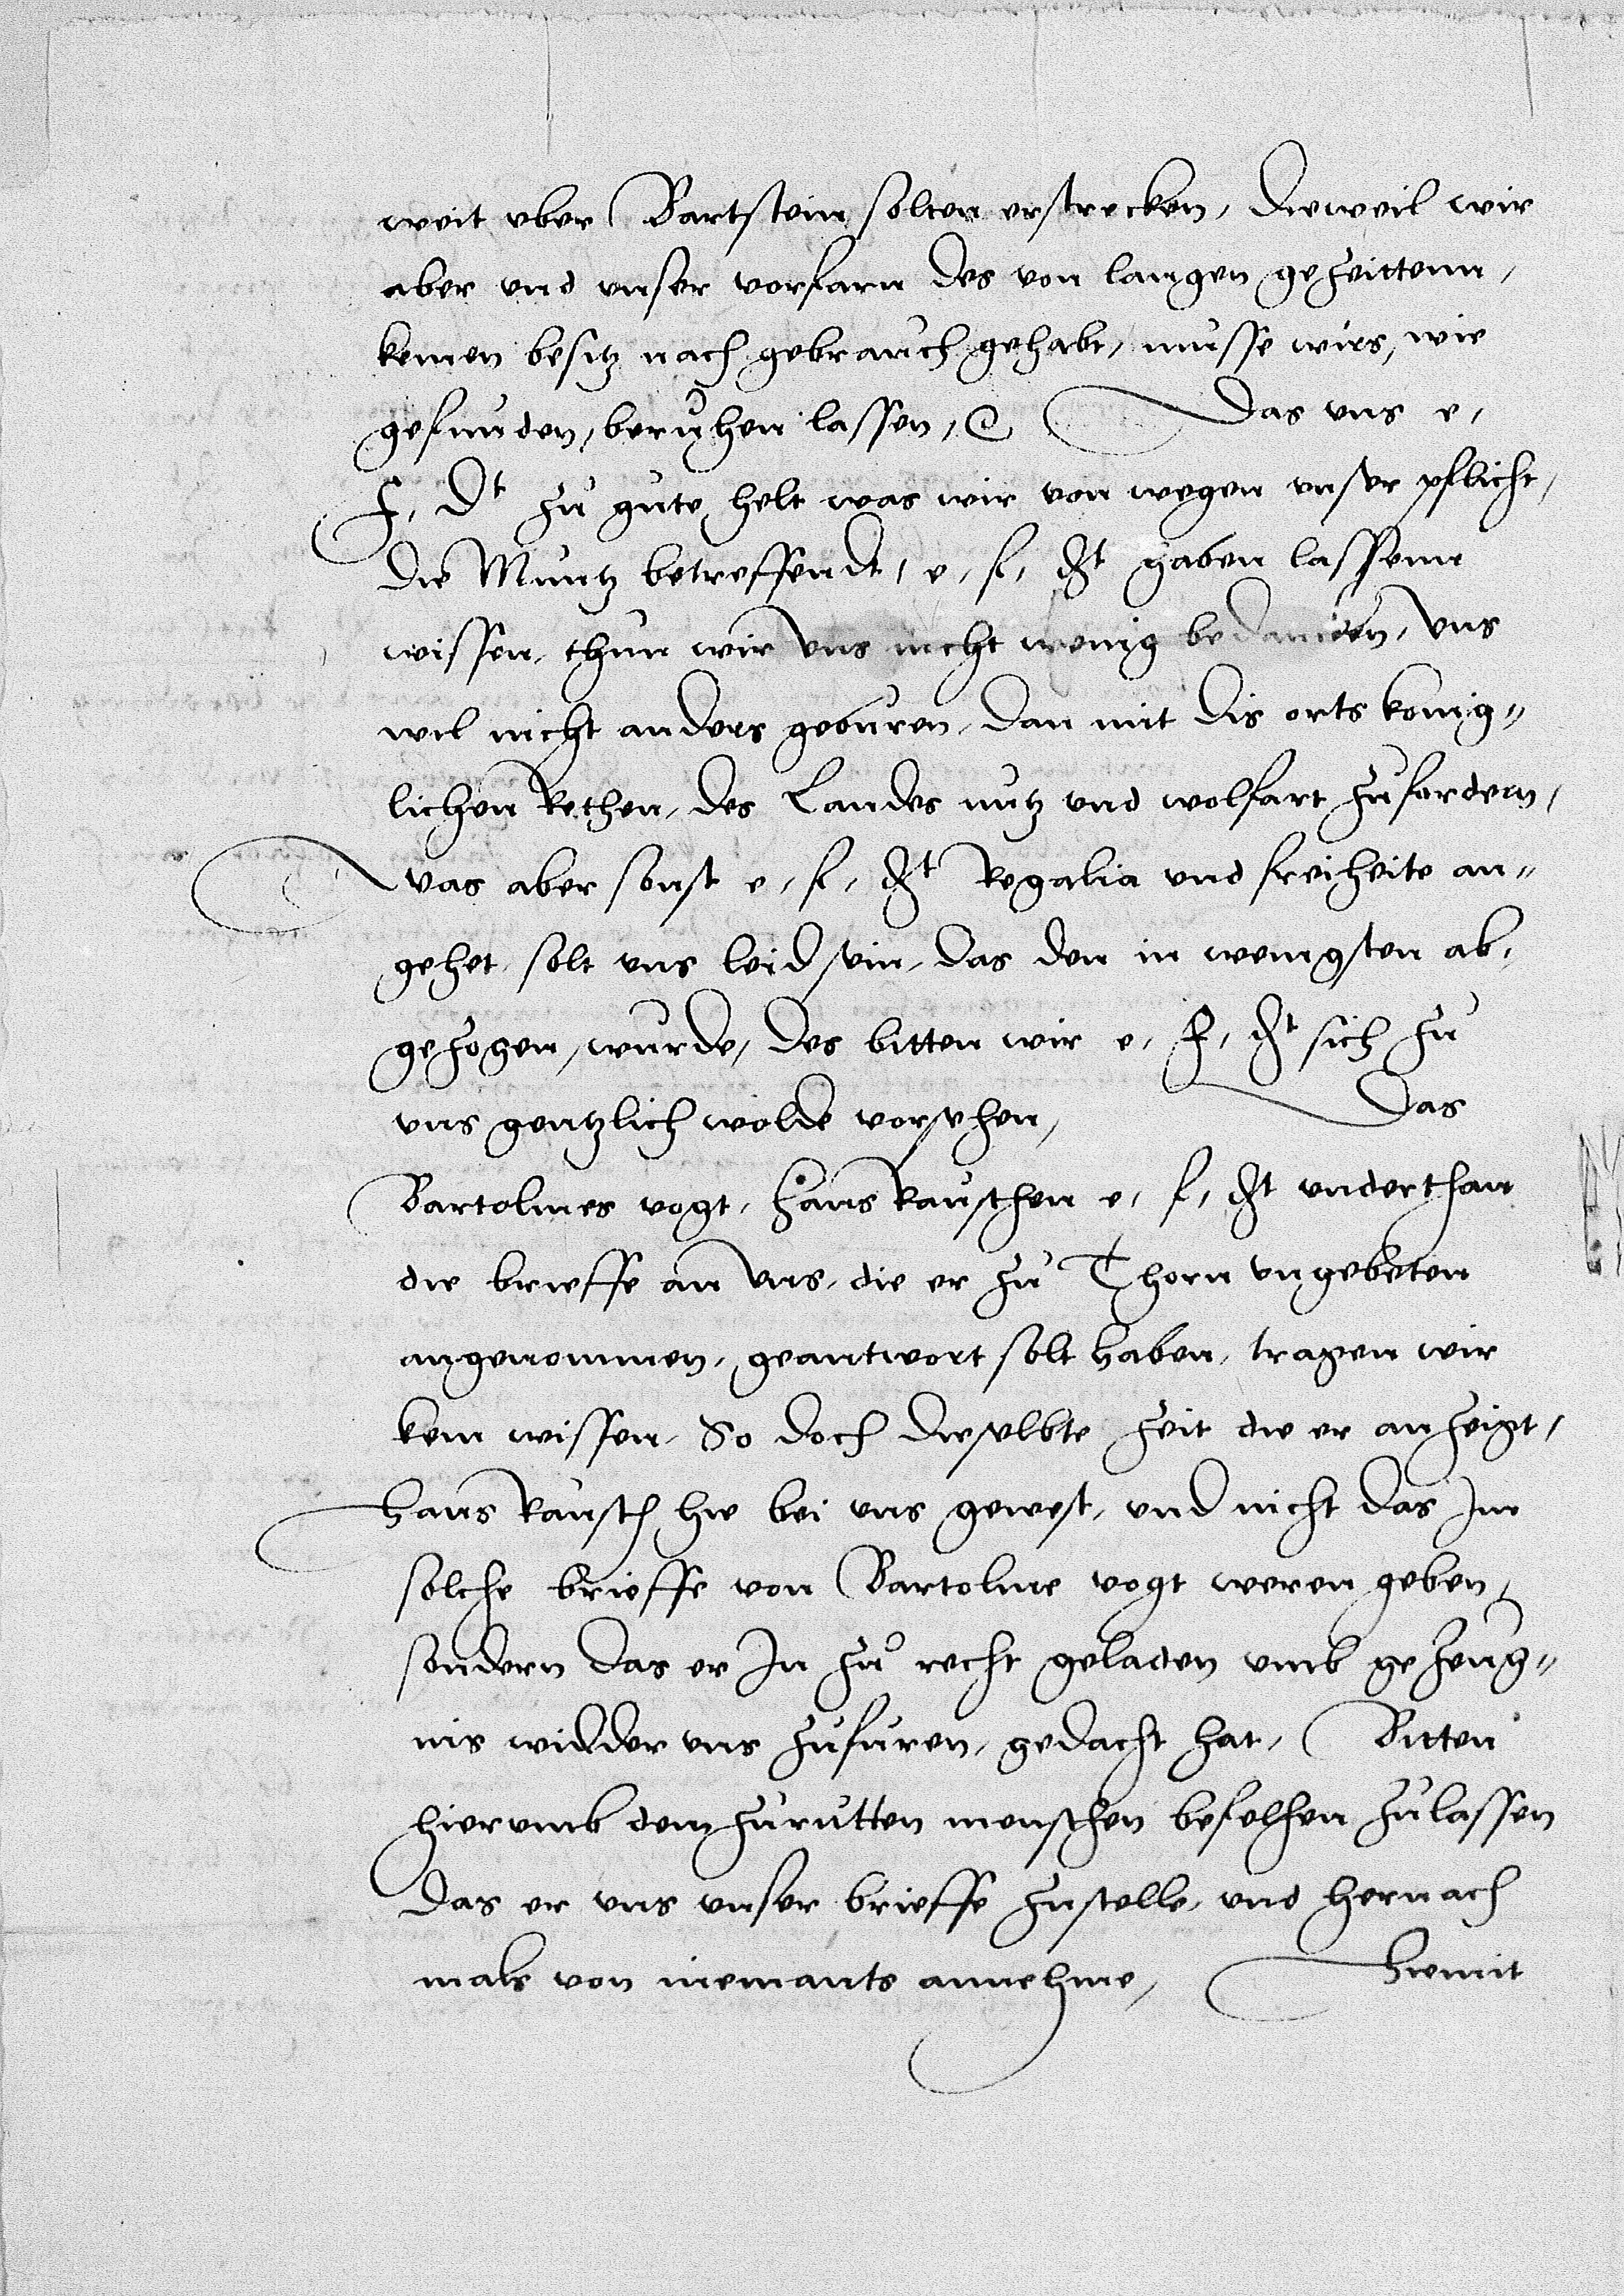 weit vber Bartstein solten erstrecken, dieweil wir
aber vnd vnser vorfarn des von langen gezeittenn,
keinen besitz nach gebrauch gehabt, musse wirs, wie
gefunden, beruhen lassen, &c Das vns e,
F, Dt zu gute helt was wir von wegen vnser pflicht,
die Muntz betreffendt, e, f, dt haben lassenn
wissen, thun wir vns nicht wenig bedancken, vns
wil nicht anders geburen, dan mit dis orts konig-
lichen Rethen, des Landes nutz vnd wolfart zufordern,
was aber sonst e, f, dt Regalia vnd freiheite an-
gehet, solt vns leid sein, das den in wenigsten ab,
gezogen, wurde, des bitten wir e, F, dt sich zu
vns gentzlich wolde vorsehen, Das
Bartolmes vogt, Hans Rauschen e, f, dt vnderthan
die brieffe an vns, die er zu Thorn vngebeten
angenommen, geantwort solt haben, tragen wir
kein wissen, So doch dieselbte zeit die er anzeigt,
Hans Rausch hie bei vns gewest, vnd nicht das Im
solche brieffe von Bartolme vogt weren geben,
sondern das er In zu recht geladen vmb gezeug-
nis widder vns zufuren, gedacht hat, Bitten
hierumb dem zurutten menschen befelhen zulassen
das er vns vnser brieffe zustelle, vnd hernach
mals von niemants annehme, Hiemit